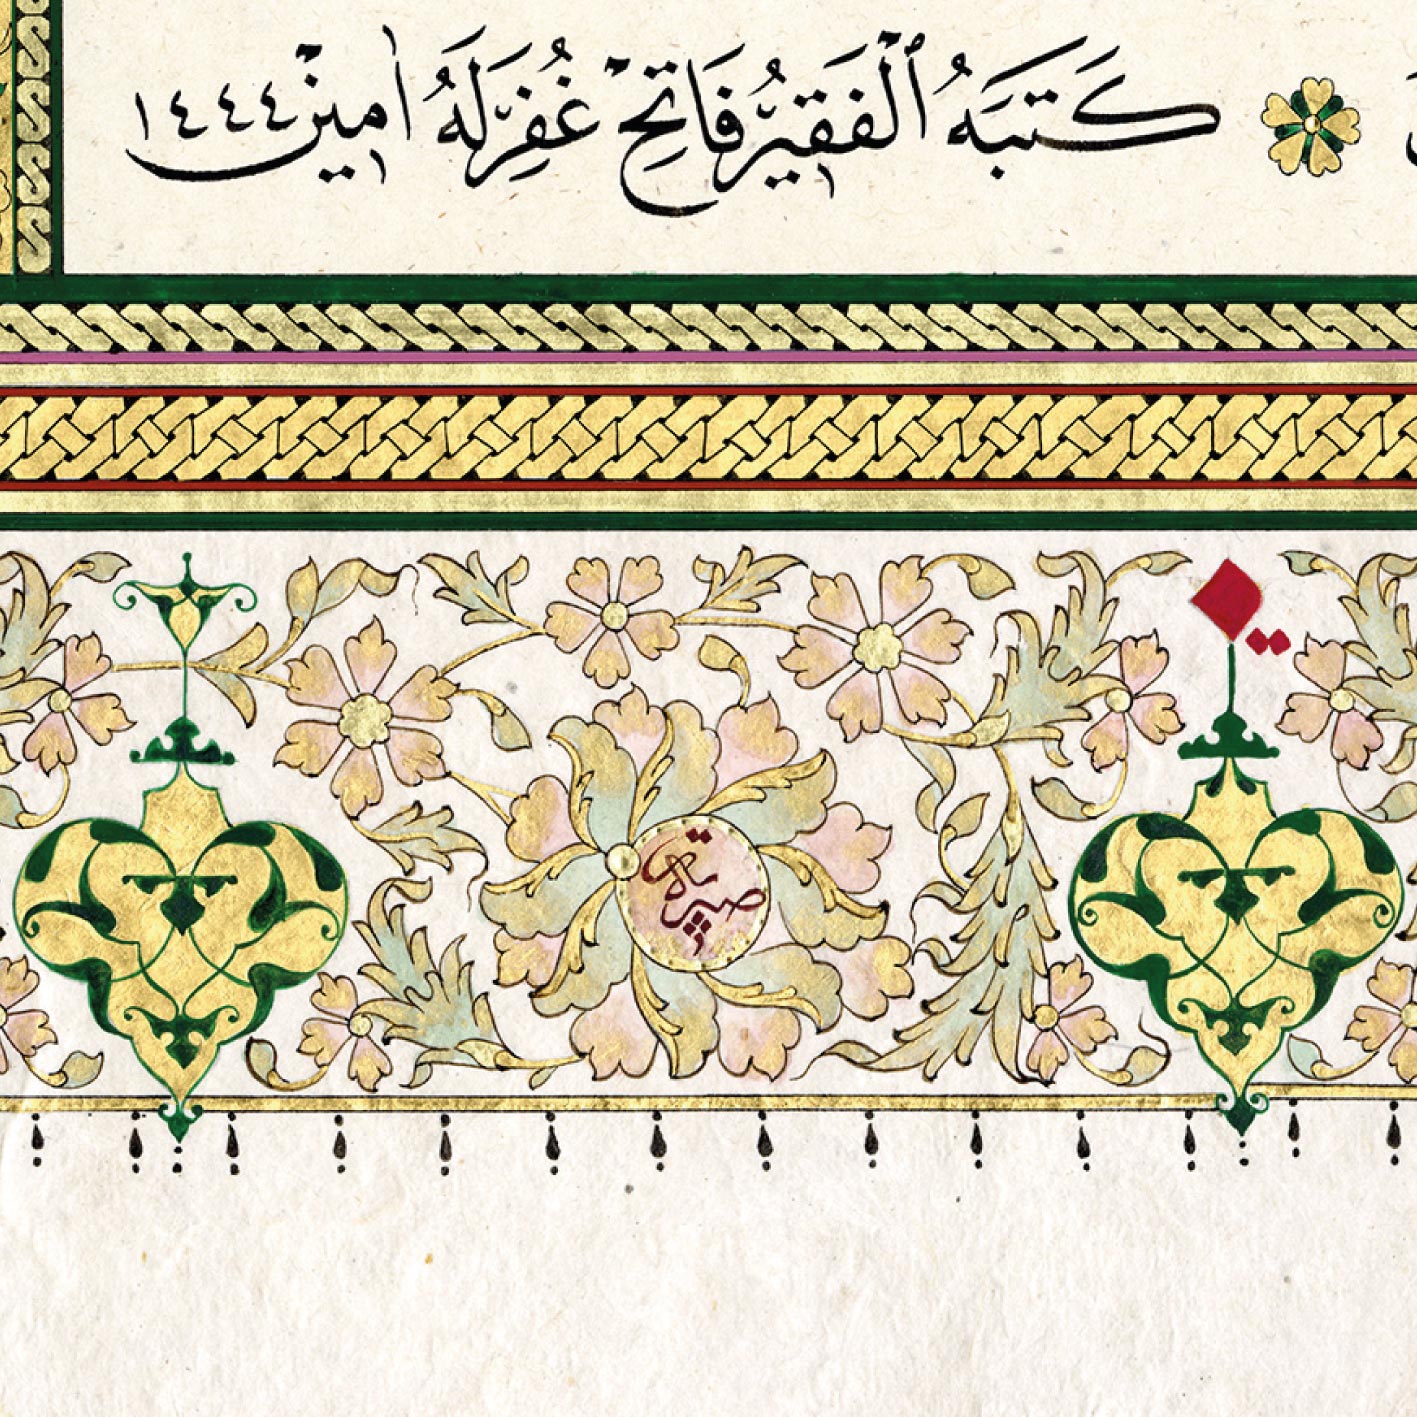 كَتَبَهُ ٱلْفَقِيرُ فَاتِحْ غُفِرَلَهُ اٰمِينْ ١٤٤٤